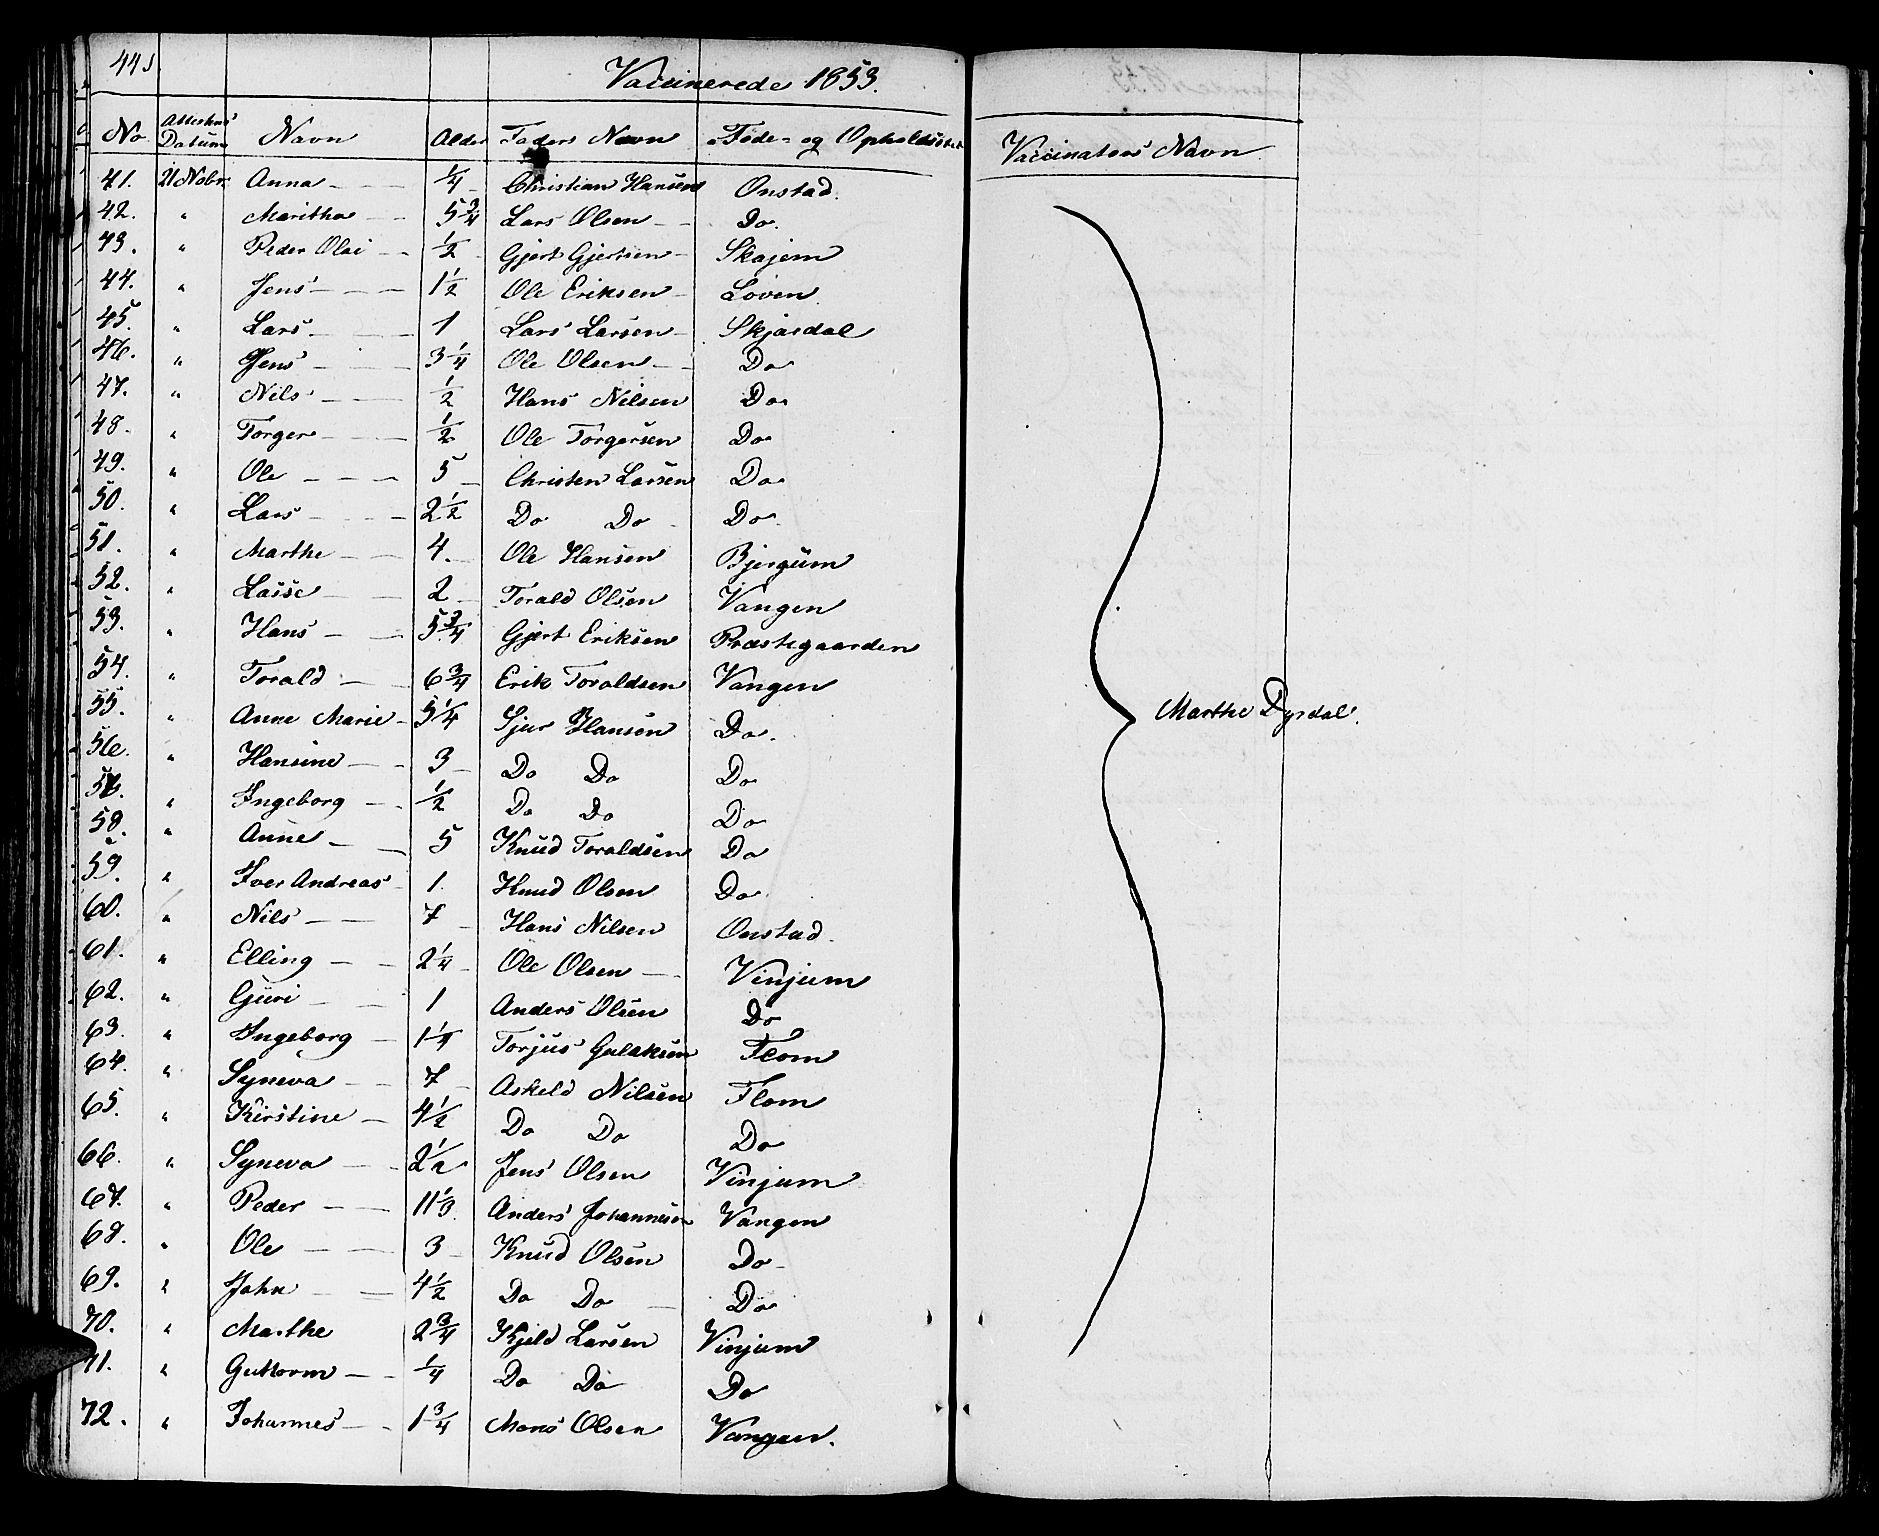 445
Vaccinerede 1853.
No Attestens Datum Navn Alder Faders Navn Føde- og Opholdssted Vaccinators Navn
41. 21 Nobr. Anna - - ¼ - Christian Hansen Onstad.
42. " Maritha - - 5¾ Lars Olsen - - Do.
43. " Peder Olai - - ½ - Gjert Gjertsen - Skajem
44. " Jens - - - 1½ Ole Eriksen - Loven
45. " Lars - - - 1 Lars Larsen - Skjærdal
46. " Jens - - - 3¼ Ole Olsen - - Do
47. " Nils - - - ½ Hans Nilsen Do
48. " Torger - - - ½ Ole Torgersen Do
49. " Ole - - - 5 - Christen Larsen Do
50. " Lars - - - 2½ Do Do - Do
51. " Marthe - - 4. - Ole Hansen Bjergum
52. " Lasse - - 2 - Torald Olsen Vangen
53. " Hans - - 5¾ Gjert Eriksen Præstegaarden
54. " Torald - - 6¾ Erik Toraldsen Vangen
Marthe Dyrdal.
55. " Anne Marie - 5¼ Sjur Hansen Do.
56. " Hansine - - 3 - Do Do Do
57. " Ingeborg - - ½ Do Do Do
58. " Anne - - 5 Knud Toraldsen Do
59. " Iver Andreas - 1. Knud Olsen Do
60. " Nils - - 7 - Hans Nilsen Onstad.
61. " Elling - - 2¼ - Ole Olsen - - Vinjum
62. " Guri - - 1 Anders Olsen Do
63. " Ingeborg - 1¼ Torjus Gulaksen Flom
64. " Syneva - - 7 - Askeld Nilsen Flom
65. " Kirstine - 4½ Do Do Do
66. " Syneva - - 2½ Jens Olsen Vinjum
67. " Peder - - 11⅓ Anders Johannesen Vangen
68. " Ole - - 3 - Knud Olsen Do -
69. " John - - 4½ Do Do - Do
70. " Marthe 2¾ Kjeld Larsen Vinjum
71. " Guttorm - - ¼ Do Do Do
72. " Johannes - - 1¾ Mons Olsen Vangen.